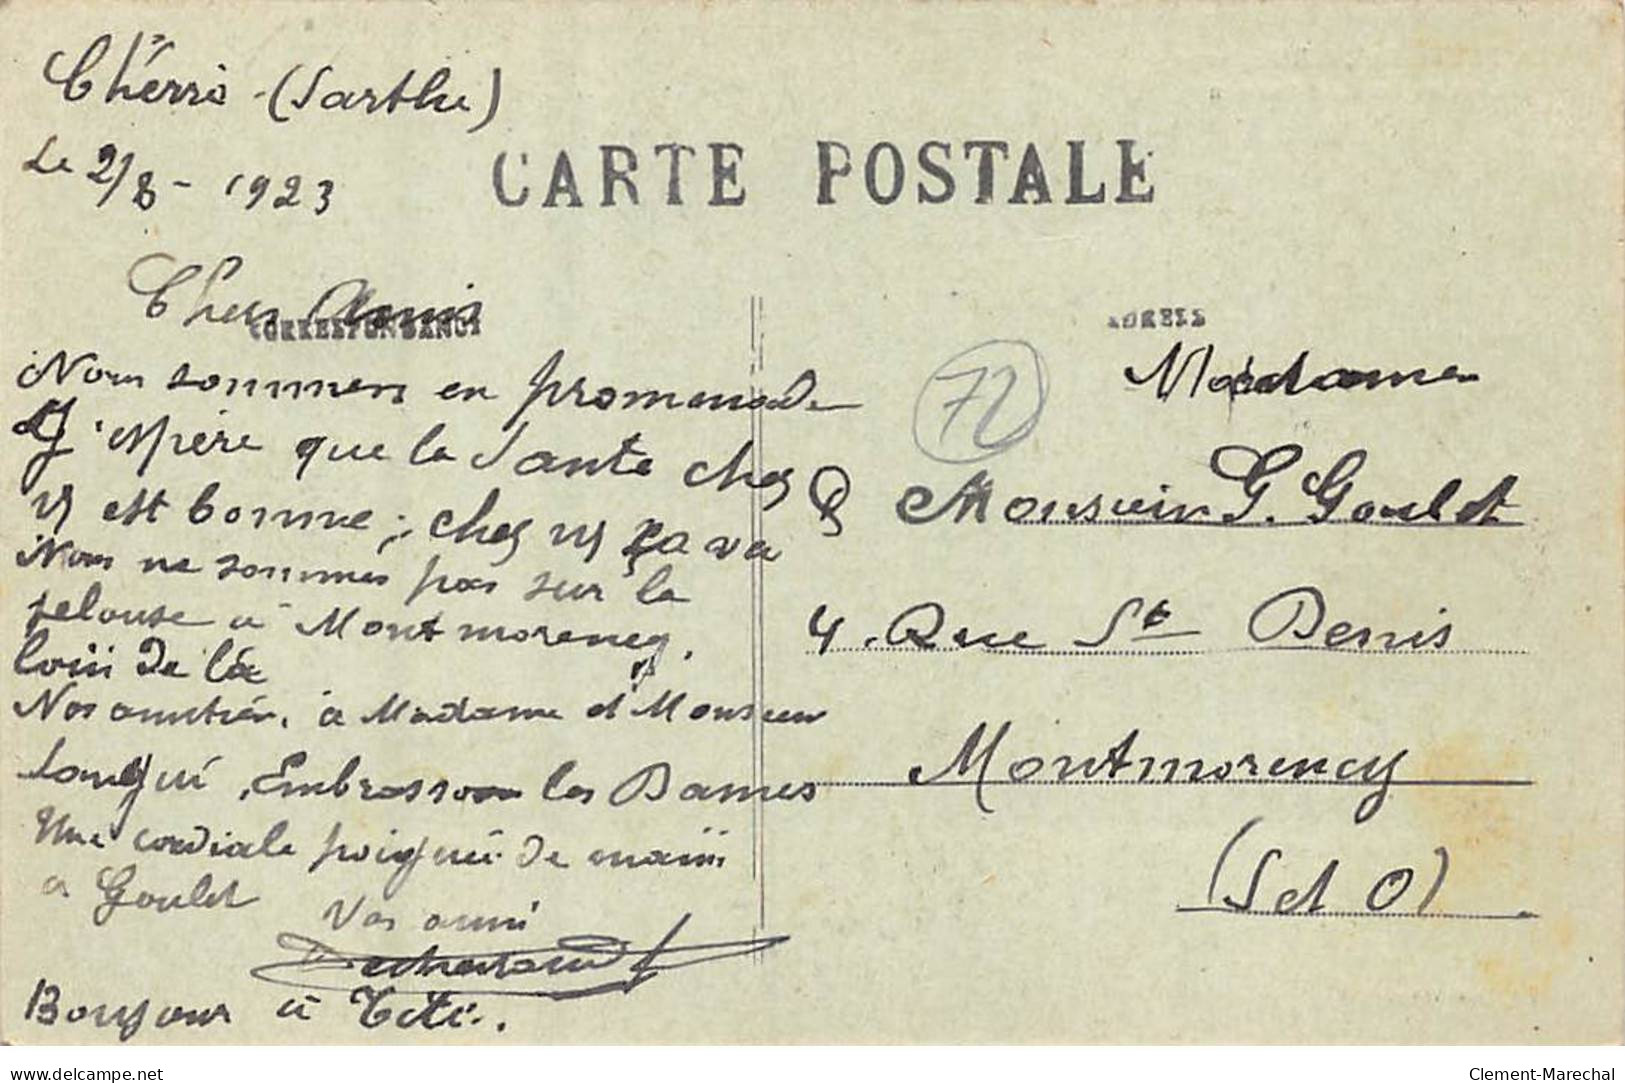 Chérré - (Sarthe)
Le 2/8 - 1923
CARTE POSTALE
CORRESPONDANCE
Chers Amis
Nous sommes en promenade
J'espère que la Santé chez
vs est bonne ; chez ns ça va
Nous ne sommes pas sur la
pelouse à Montmorency,
loin de là
Nos amitiés, à Madame et Monsieur
Embrassons les Dames
Une cordiale poignée de main
a Goulet
Vos ami
Bonjour à Tété.
ADRESS
72
Madame
& Monsieur G. Goulet
4. Rue St Denis
Montmorency
(S et O)
delcampe.net
Clement-Marechal